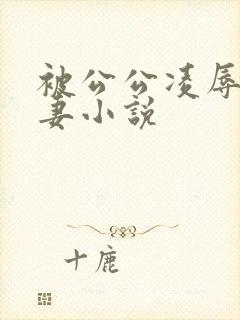 被公公凌辱
妻小説
十鹿